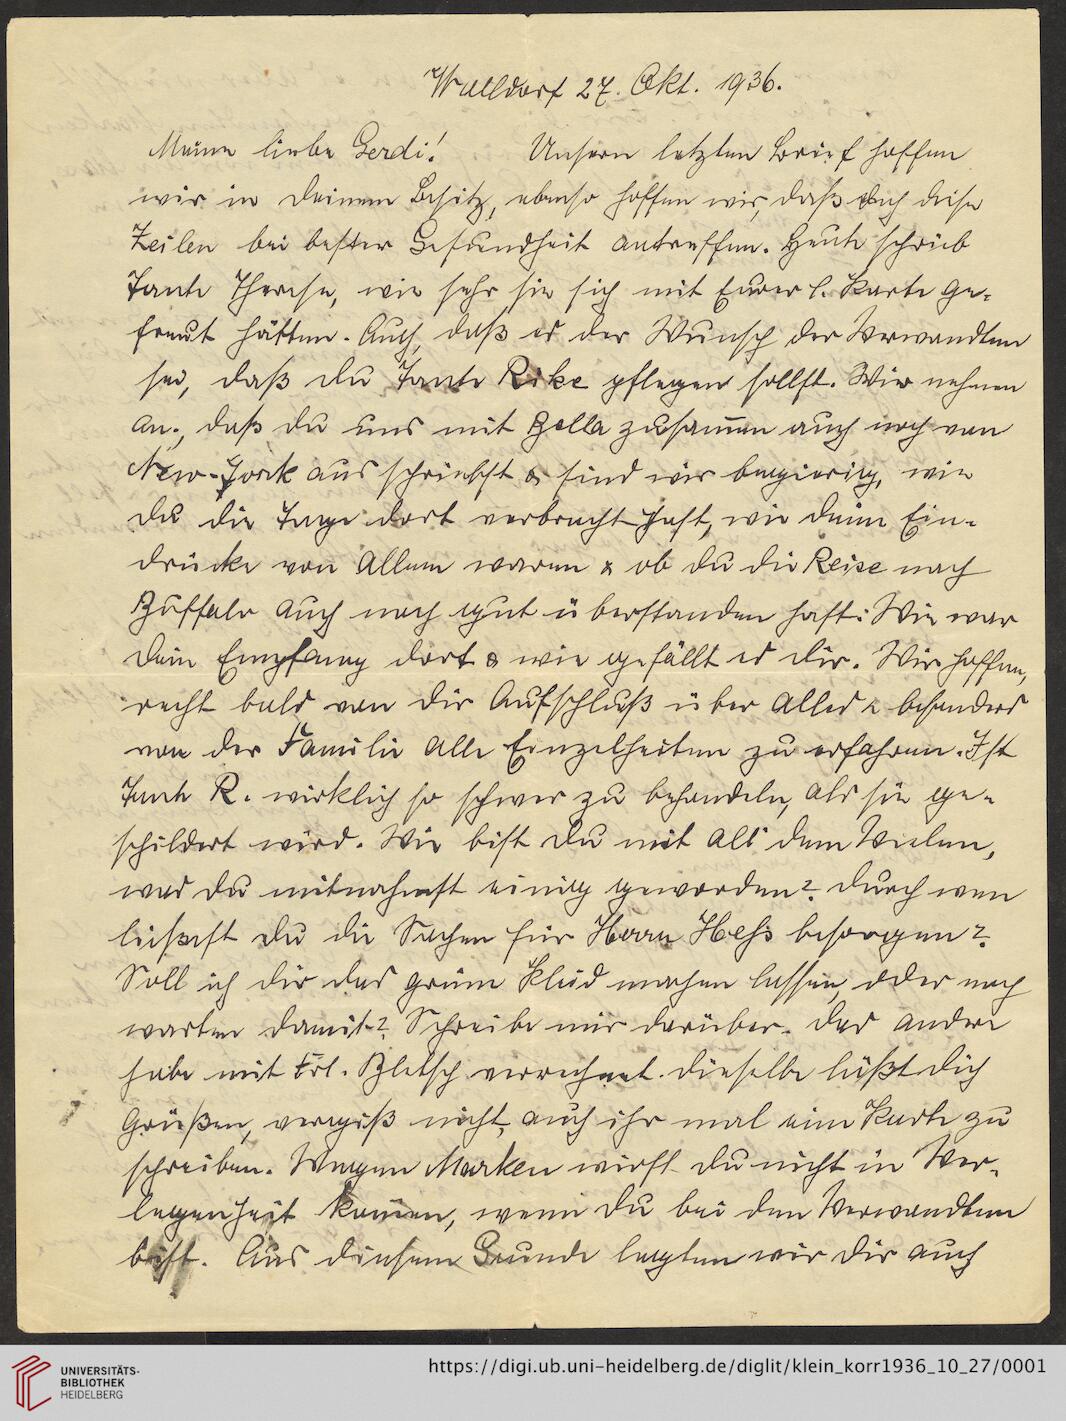 Walldorf 27. Okt. 1936.
Meine liebe Gerdi! Unsern letzten Brief hoffen
wir in Deinem Besitz, ebenso hoffen wir, daß dich diese
Zeilen bei bester Gesundheit antreffen. Heute schrieb
Tante Therese, wie sehr sie sich mit Eurer l. Karte ge-
freut hätten. Auch, daß es der Wunsch der Verwandten
sei, daß du Tante Rike pflegen sollst. Wir nehmen
an, daß du uns mit Bella zusamen auch noch von
New-York aus schriebst & sind wir begierig, wie
du die Tage dort verbracht hast, wie deine Ein-
drücke von Allem waren & ob du die Reise nach
Buffalo auch noch gut überstanden hast. Wie war
dein Empfang dort & wie gefällt es dir. Wir hoffen,
recht bald von dir Aufschluß über Alles & besonders
von der Familie alle Einzelheiten zu erfahren. Ist
Tante R. wirklich so schwer zu behandeln, als sie ge-
schildert wird. Wie bist du mit all' dem Vielen,
was du mitnahmst einig geworden? durch wen
ließest du die Sachen für Herrn Heß besorgen?
Soll ich dir das grüne Kleid machen lassen, oder noch
warten damit? Schreibe mir darüber. das andre
habe mit Frl. Bletsch verrechnet. dieselbe läßt dich
Grüßen, vergiß nicht, auch ihr mal eine Karte zu
schreiben. Wegen Marken wirst du nicht in Ver-
legenheit kommen, wenn du bei den Verwandten
bist. Aus diesem Grunde legten wir dir auch
UNIVERSITÄTS-
BIBLIOTHEK
HEIDELBERG
https://digi.ub.uni-heidelberg.de/diglit/klein_korr1936_10_27/0001